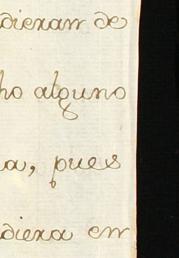 dieran de
ho alguno
a, pues
diera en